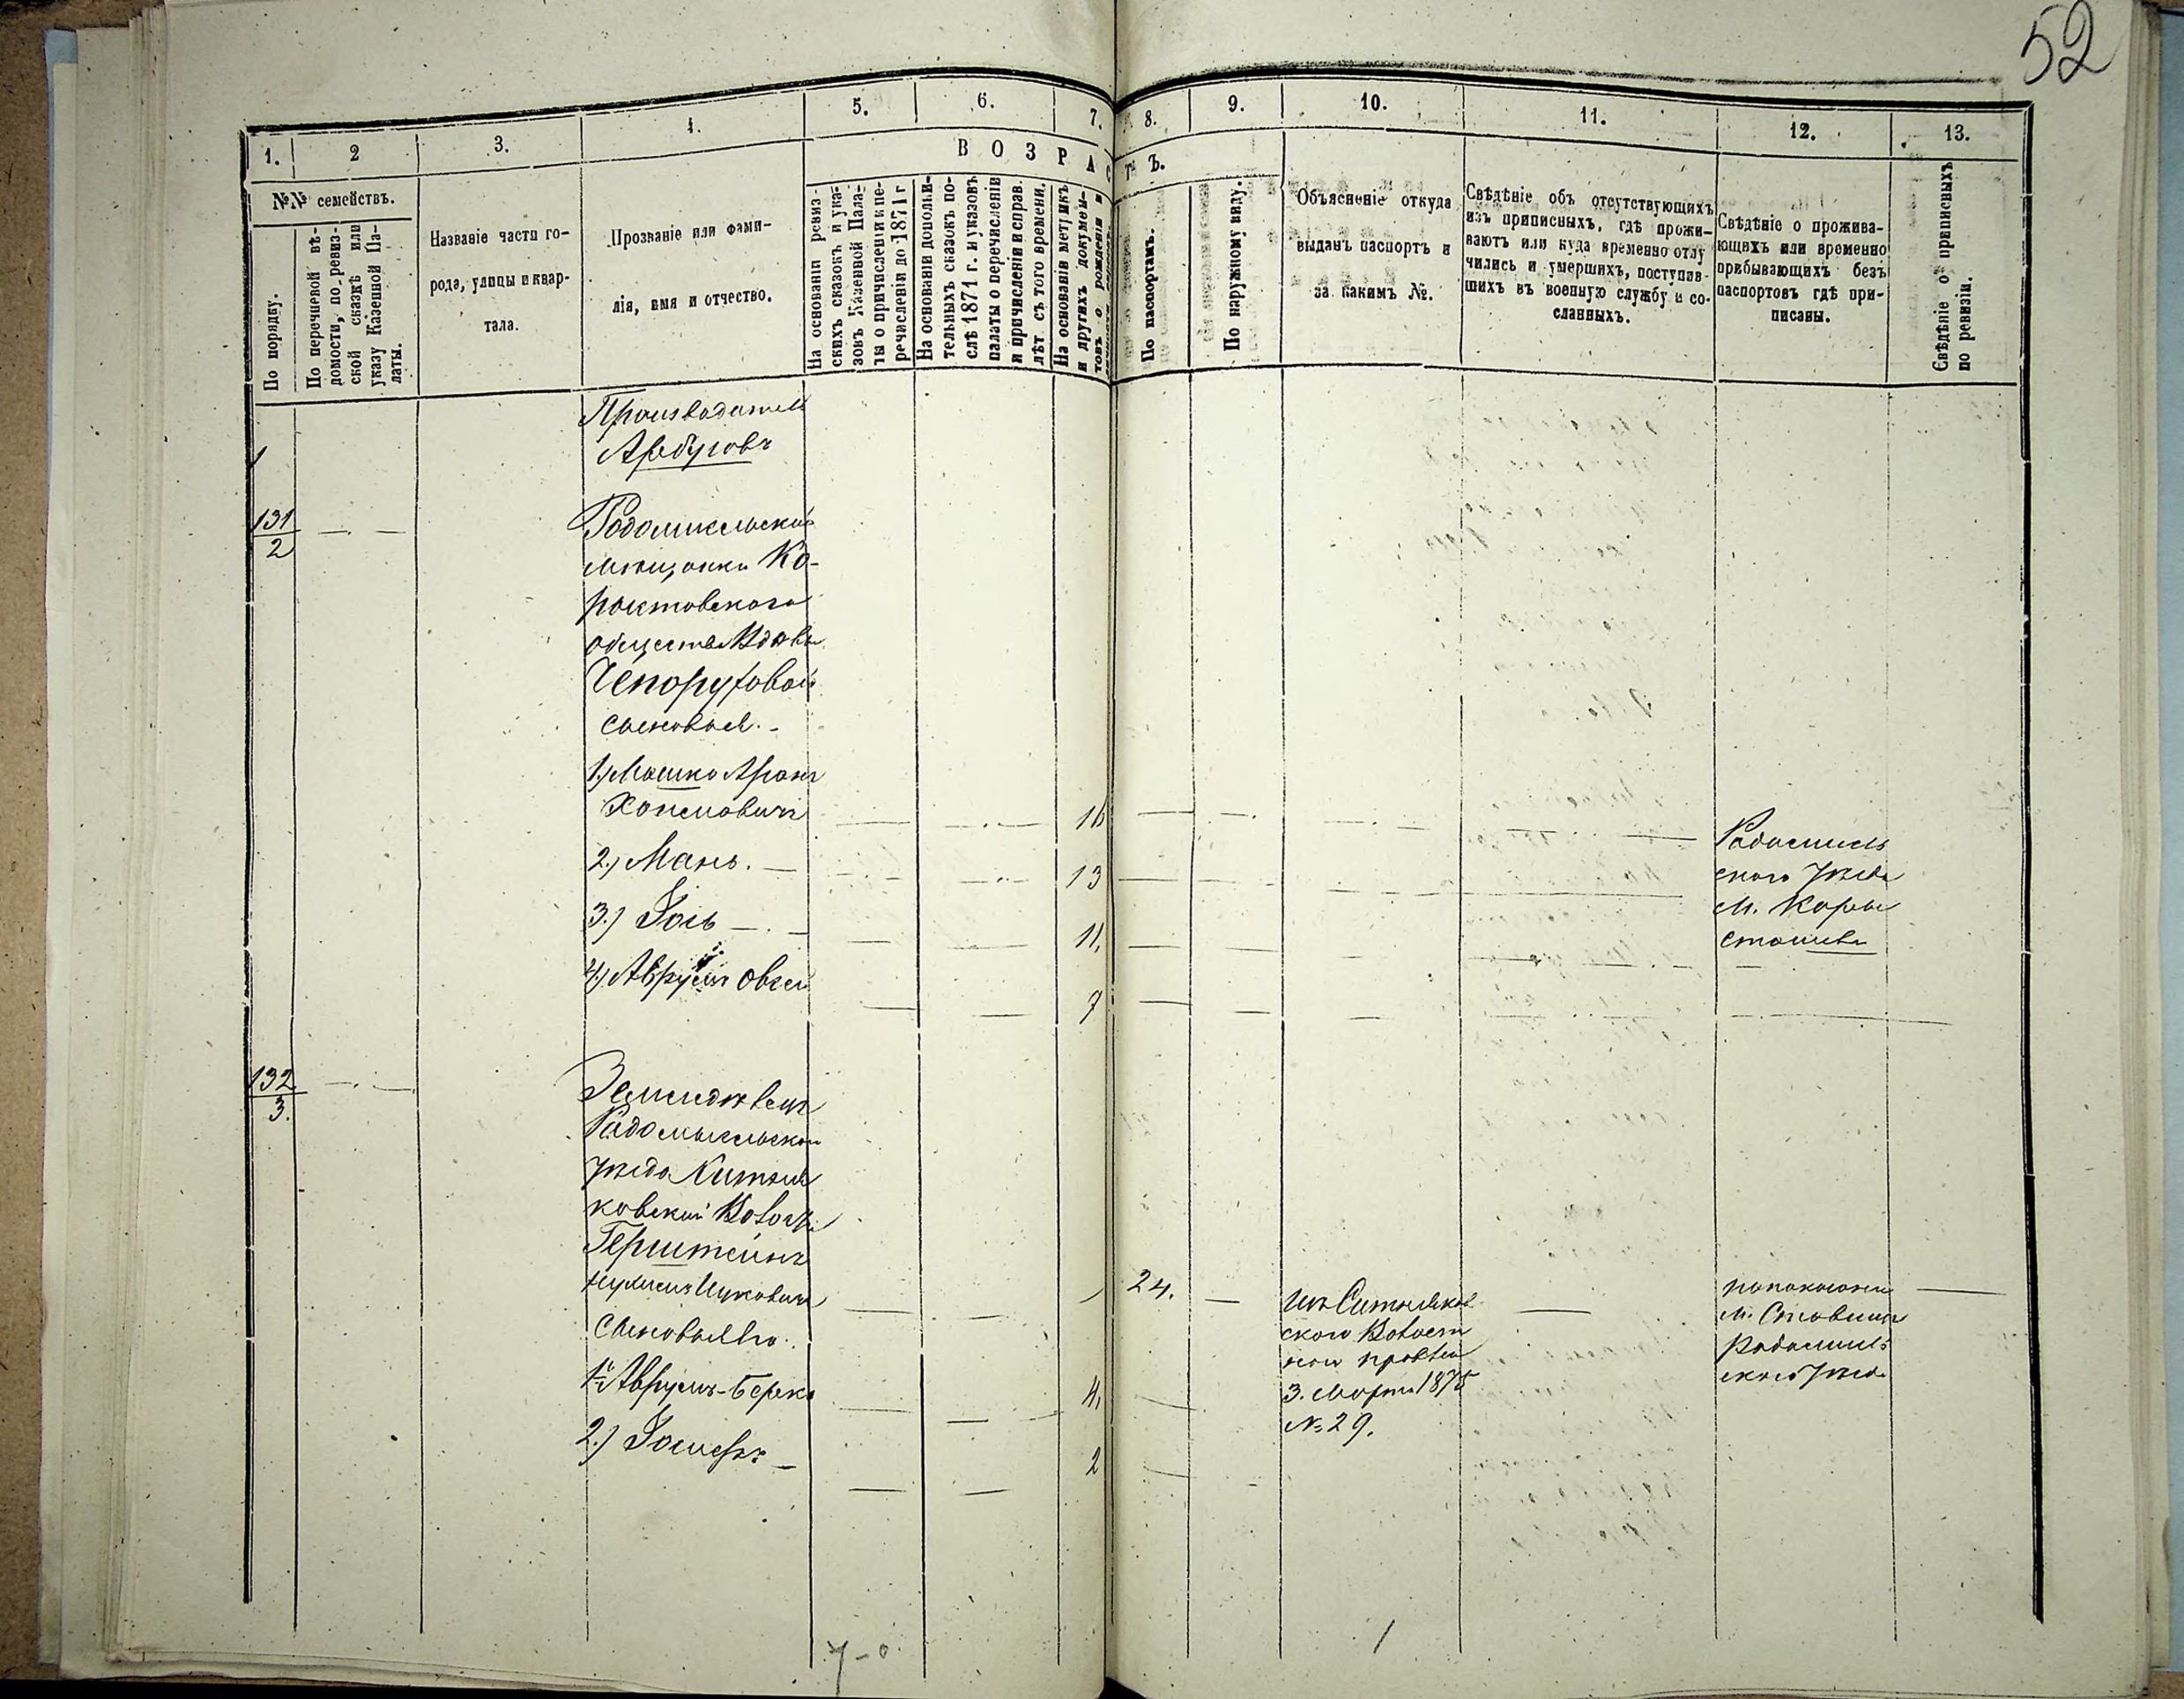 52
1.
2
3.
4.
5.
6.
7.
8.
9.
10.
11.
12.
13.
№№ семействъ.
ВОЗРАСТЪ.
По порядку.
По перечневой вѣ-
домости, по ревиз-
ской сказкѣ или
указу Казенной Па-
латы.
Названіе части го-
рода, улицы и квар-
тала.
Прозваніе или фами-
лія, имя и отчество.
На основаніи ревиз-
скихъ сказокъ и ука-
зовъ Казенной Пала-
ты о причисленіи и пе-
речисленіи до 1871 г
На основаніи дополни-
тельныхъ сказокъ по-
слѣ 1871 г. и указовъ
палаты о перечисленіи
и причисленіи и справ.
лѣт съ того времени.
На основаніи метрикъ
и другихъ докумен-
товъ о рожденіи и
По паспортамъ.
По наружному виду.
Объясненіе откуда
выданъ паспортъ и
за какимъ №.
Свѣдѣніе объ отсутствующихъ
изъ приписныхъ, гдѣ прожи-
ваютъ или куда временно отлу
чились и умершихъ, поступив-
шихъ въ военную службу и со-
сланныхъ.
Свѣдѣніе о прожива-
ющихъ или временно
прибывающихъ безъ
паспортовъ гдѣ при-
писаны.
Свѣдѣніе о приписныхъ
по ревизіи.
Производитель
Арбузовъ
131
2
Радомисльскій
мѣщанки Ко-
ростовского
общества Вдовы
Чепоруховой
сыновья. -
1.) Мошко Аронъ
Хаимовичъ
16
2.) Мань. —
13
3.) Іось — . —
11,
4.) Аврумъ Овсей
7
Радомисль
ского Уѣзда
М. Коры
стошева
132
3.
Земледѣлецъ
Радомысльскаго
Уѣзда Ситня
ковской Волости
Герштейнъ
Ицковичъ
сыновья его.
24.
изъ Ситняков
ского Волостн
ного правлен
3. Марта 1875
№ 29.
М. Ставищи
Радомисль
ского Уѣзда
1. Аврумъ-Берко
4,
2.) Іосифъ —
2
7-0
1